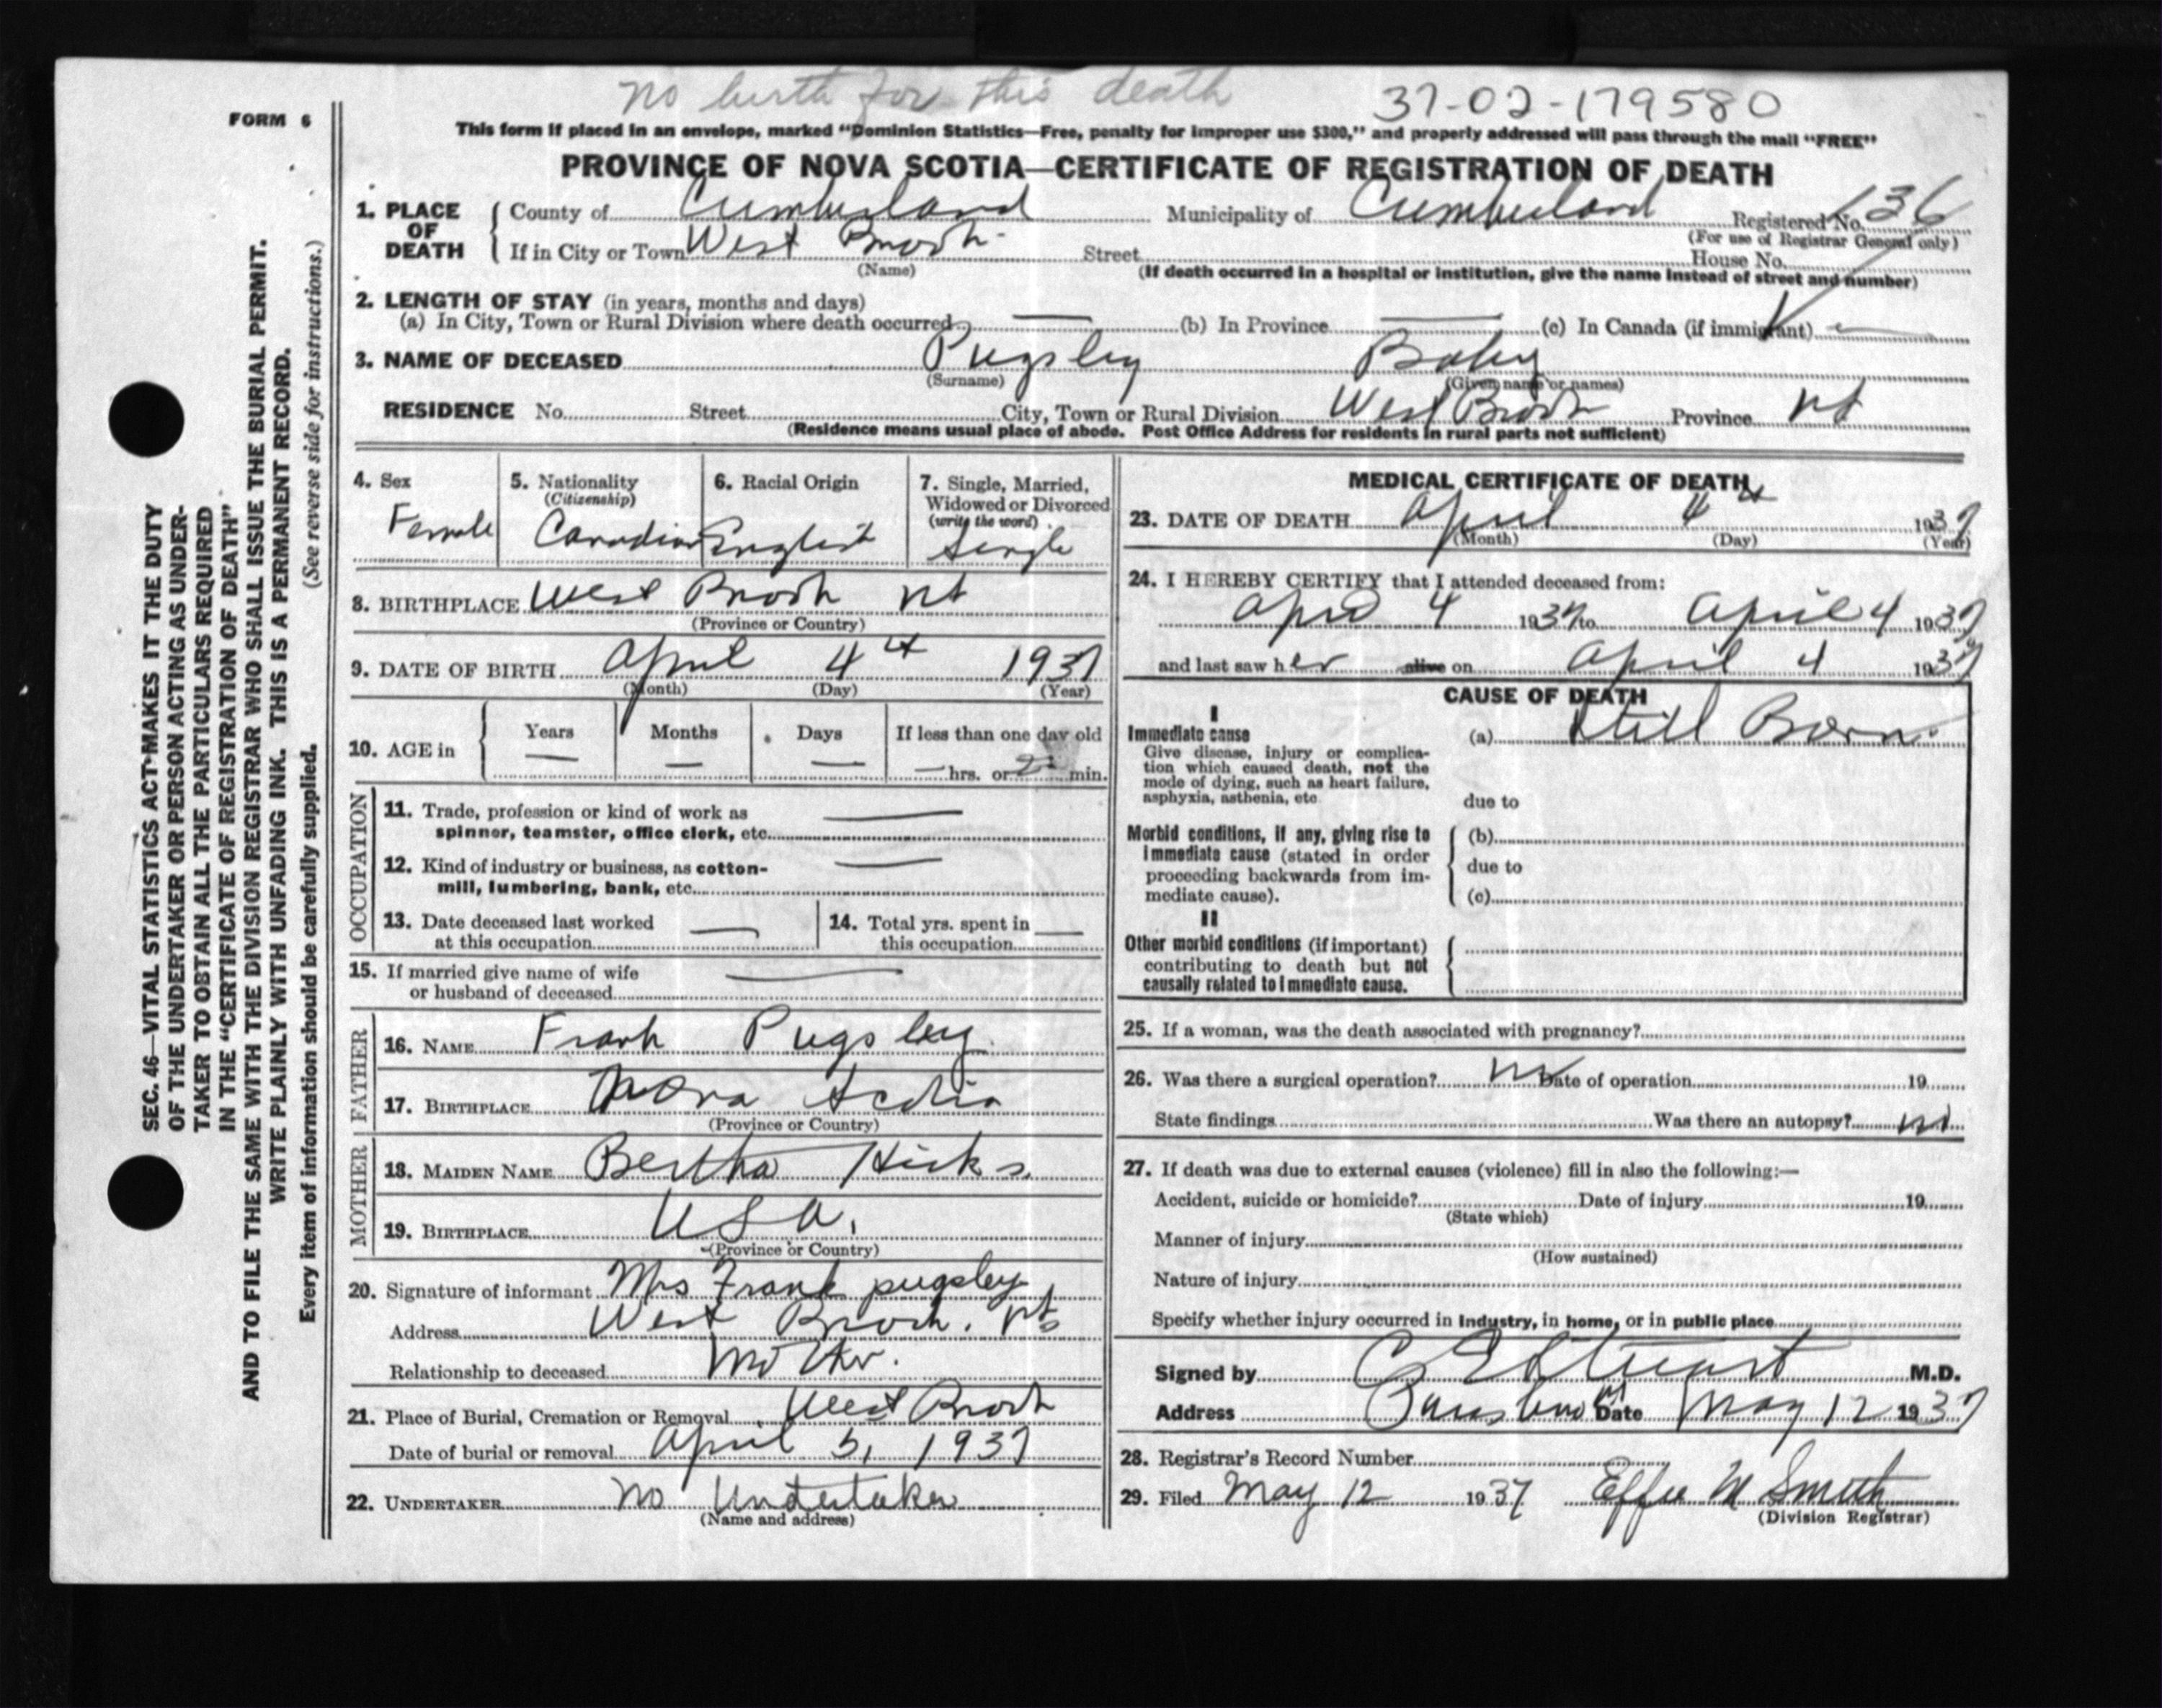 No birth for this death 37-02-179580
FORM 6
This form if placed in an envelope, marked "Dominion Statistics—Free, penalty for improper use $300," and properly addressed will pass through the mail "FREE"
PROVINCE OF NOVA SCOTIA—CERTIFICATE OF REGISTRATION OF DEATH
1. PLACE OF DEATH County of Cumberland Municipality of Cumberland Registered No. 136
(For use of Registrar General only)
If in City or Town West Brook Street House No.
(Name) (If death occurred in a hospital or institution, give the name instead of street and number)
2. LENGTH OF STAY (in years, months and days)
(a) In City, Town or Rural Division where death occurred — (b) In Province — (c) In Canada (if immigrant) —
3. NAME OF DECEASED Pugsley Baby
(Surname) (Given name or names)
RESIDENCE No. Street City, Town or Rural Division West Brook Province NS
(Residence means usual place of abode. Post Office Address for residents in rural parts not sufficient)
4. Sex
Female
5. Nationality
(Citizenship)
Canadian
6. Racial Origin
English
7. Single, Married,
Widowed or Divorced
(write the word)
Single
8. BIRTHPLACE West Brook NS
(Province or Country)
9. DATE OF BIRTH April 4th 1937
(Month) (Day) (Year)
10. AGE in Years Months Days If less than one day old
— — — — hrs. or min.
OCCUPATION
11. Trade, profession or kind of work as —
spinner, teamster, office clerk, etc.
12. Kind of industry or business, as cotton- —
mill, lumbering, bank, etc.
13. Date deceased last worked
at this occupation —
14. Total yrs. spent in
this occupation —
15. If married give name of wife —
or husband of deceased
FATHER
16. NAME Frank Pugsley
17. BIRTHPLACE Nova Scotia
(Province or Country)
MOTHER
18. MAIDEN NAME Bertha Hicks
19. BIRTHPLACE USA.
(Province or Country)
20. Signature of informant Mrs Frank pugsley
Address West Brook. NS
Relationship to deceased Mother.
21. Place of Burial, Cremation or Removal West Brook
Date of burial or removal April 5, 1937
22. UNDERTAKER No Undertaker
(Name and address)
MEDICAL CERTIFICATE OF DEATH
23. DATE OF DEATH April 4th 1937
(Month) (Day) (Year)
24. I HEREBY CERTIFY that I attended deceased from:
April 4 1937 to April 4 1937
and last saw her alive on April 4 1937
CAUSE OF DEATH
I
Immediate cause (a) Still Born.
Give disease, injury or complica-
tion which caused death, not the
mode of dying, such as heart failure,
asphyxia, asthenia, etc.
due to
Morbid conditions, if any, giving rise to (b)
immediate cause (stated in order
proceeding backwards from im- due to
mediate cause). (c)
II
Other morbid conditions (if important)
contributing to death but not
causally related to immediate cause.
25. If a woman, was the death associated with pregnancy?
26. Was there a surgical operation? no Date of operation 19
State findings Was there an autopsy? no
27. If death was due to external causes (violence) fill in also the following:—
Accident, suicide or homicide? Date of injury 19
(State which)
Manner of injury
(How sustained)
Nature of injury
Specify whether injury occurred in industry, in home, or in public place
Signed by C E Stuart M.D.
Address Parrsboro NS Date May 12 1937
28. Registrar's Record Number
29. Filed May 12 1937 Effie M Smith
(Division Registrar)
SEC. 46—VITAL STATISTICS ACT MAKES IT THE DUTY
OF THE UNDERTAKER OR PERSON ACTING AS UNDER-
TAKER TO OBTAIN ALL THE PARTICULARS REQUIRED
IN THE "CERTIFICATE OF REGISTRATION OF DEATH"
AND TO FILE THE SAME WITH THE DIVISION REGISTRAR WHO SHALL ISSUE THE BURIAL PERMIT.
WRITE PLAINLY WITH UNFADING INK. THIS IS A PERMANENT RECORD.
Every item of information should be carefully supplied. (See reverse side for instructions.)